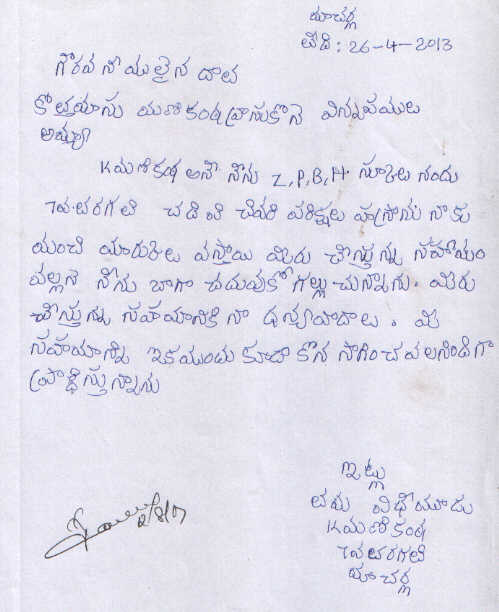 మాచర్ల
తేది : 26-4-2013
గౌరవనీయులైన దాత
కోట్లయాసు మణికంఠ వ్రాసుకొనె విన్నపములు
అమ్మా
K మణికంఠ అనే నేను Z,P,B,H స్కూలు నందు
7వ తరగతి చదివి చివరి పరిక్షలు వ్రాసాను నాకు
మంచి మారుకులు వస్తాయి మిరు చేస్తున్న సహాయం
వల్లనే నేను బాగా చదువుకోగల్లుచున్నాను. మిరు
చేస్తున్న సహాయానికి నా ధన్యవాదాలు. మి
సహాయాన్ని ఇకముందు కూడా కొన సాగించవలసిందిగా
ప్రార్ధిస్తున్నాను
ఇట్లు
తమ విధేయూడు
K మణికంఠ
7వ తరగతి
మాచర్ల